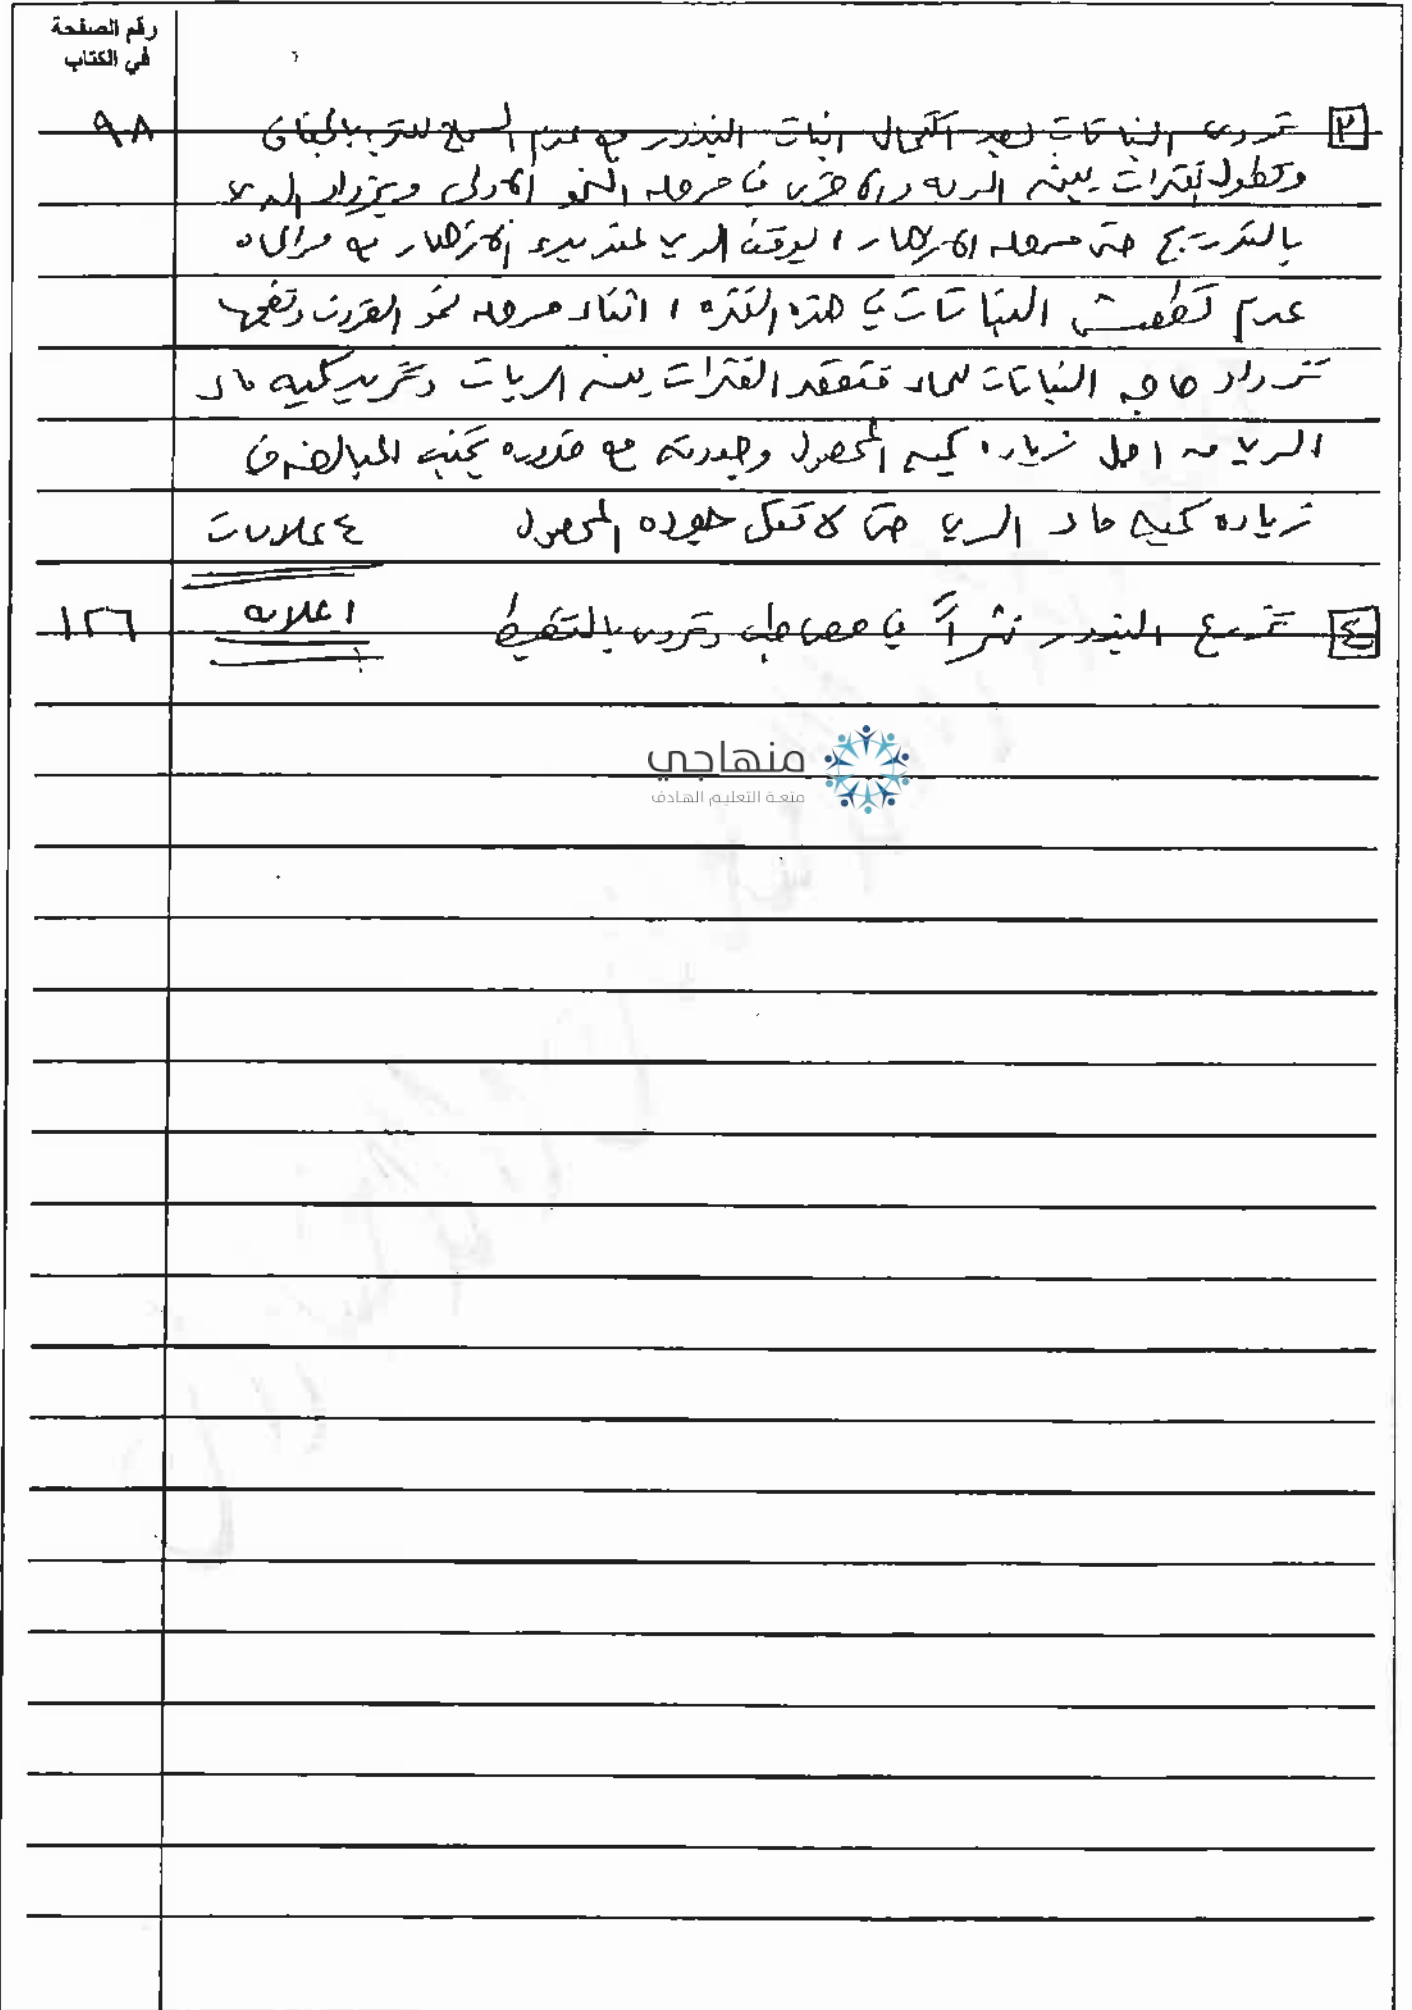 رقم الصفحة
في الكتاب
٣ تروى النباتات بعد اكتمال انبات البذور مع عدم السماح للتربه بالجفاف ٩٨
وتطول الفترات بين الريه والاخرى في مرحله النمو الاولى ويزداد الري
بالتدريج حتى مرحله الازهار ، يوقف الري عند بدء الازهار مع مراعاه
عدم تعطيش النباتات في هذه الفتره ، اثناء مرحله نمو القرون ونضجها
تزداد حاجه النباتات للماء فتقصر الفترات بين الريات وتزيد كميه ماء
الري من اجل زياده كميه المحصول وجودته مع ضروره تجنب المبالغه في
زياده كميه ماء الري حتى لا تقل جوده المحصول ٤ علامات
٤ تزرع البذور نثراً في مصاطب وتروى بالتنقيط ١ علامه ١٢٦
منهاجي
متعة التعليم الهادف